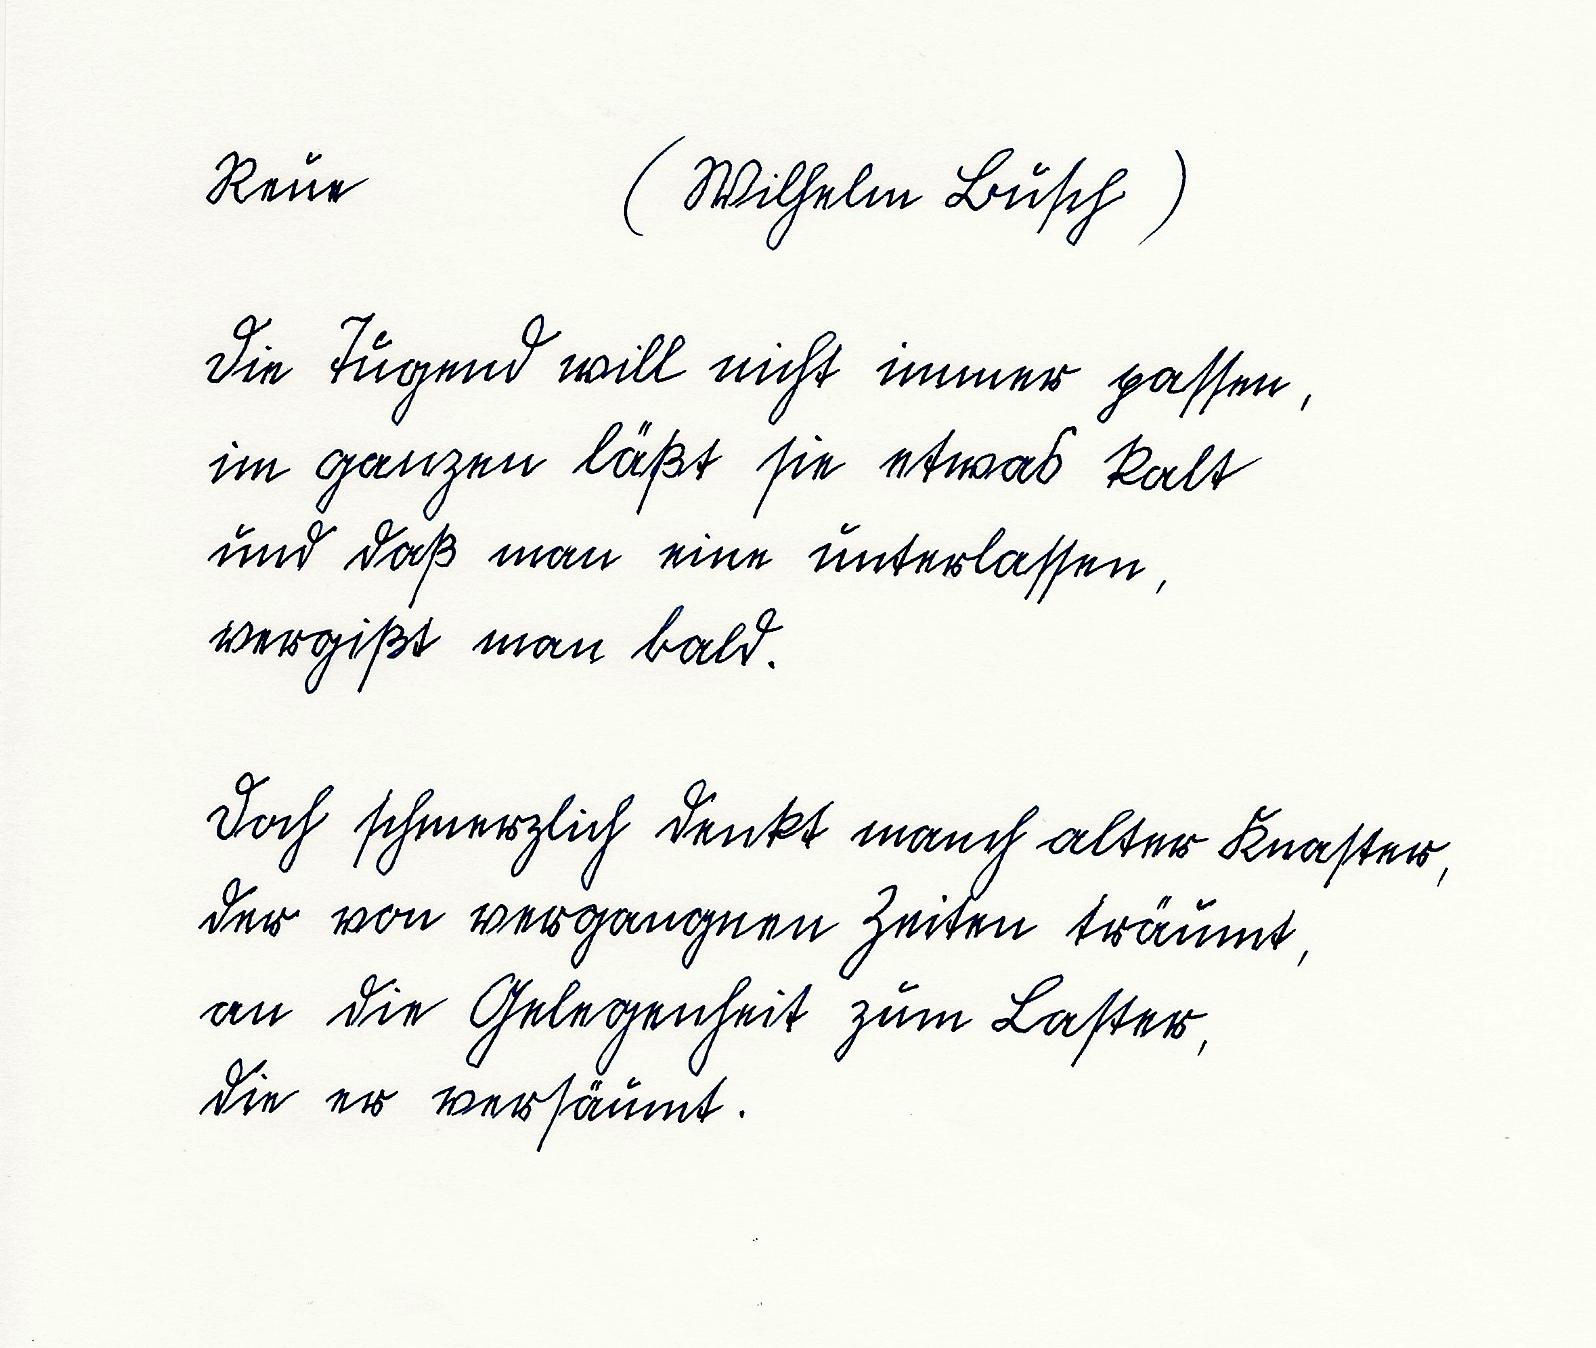 Reue (Wilhelm Busch)
Die Tugend will nicht immer passen,
im ganzen läßt sie etwas kalt
und daß man eine unterlassen,
vergißt man bald.
Doch schmerzlich denkt manch alter Knaster,
der von vergangnen Zeiten träumt,
an die Gelegenheit zum Laster,
die er versäumt.